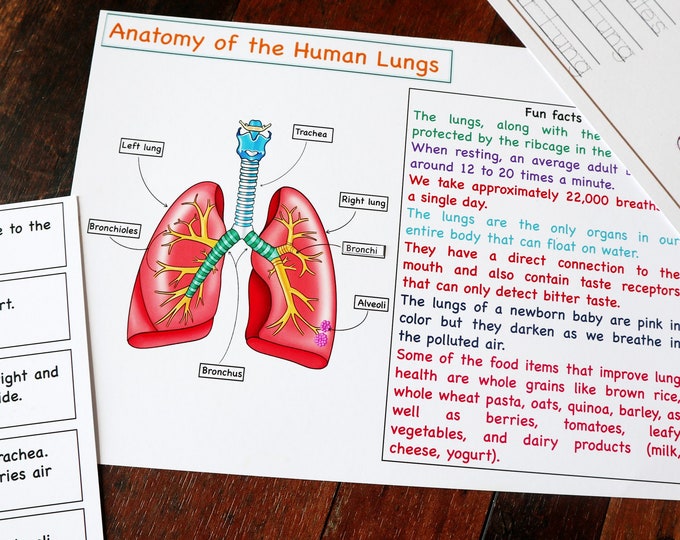 Anatomy of the Human Lungs
Left lung
Trachea
Right lung
Bronchioles
Bronchi
Alveoli
Bronchus
Fun facts
The lungs, along with the
protected by the ribcage in the
When resting, an average adult
around 12 to 20 times a minute.
We take approximately 22,000
a single day.
The lungs are the only organs in our
entire body that can float on water.
They have a direct connection to the
mouth and also contain taste receptors
that can only detect bitter taste.
The lungs of a newborn baby are pink in
color but they darken as we breathe in
the polluted air.
Some of the food items that improve lung
health are whole grains like brown rice,
whole wheat pasta, oats, quinoa, barley, as
well as berries, tomatoes, leafy
vegetables, and dairy products (milk,
cheese, yogurt).
e to the
rt.
ight and
ide.
rachea.
ries air